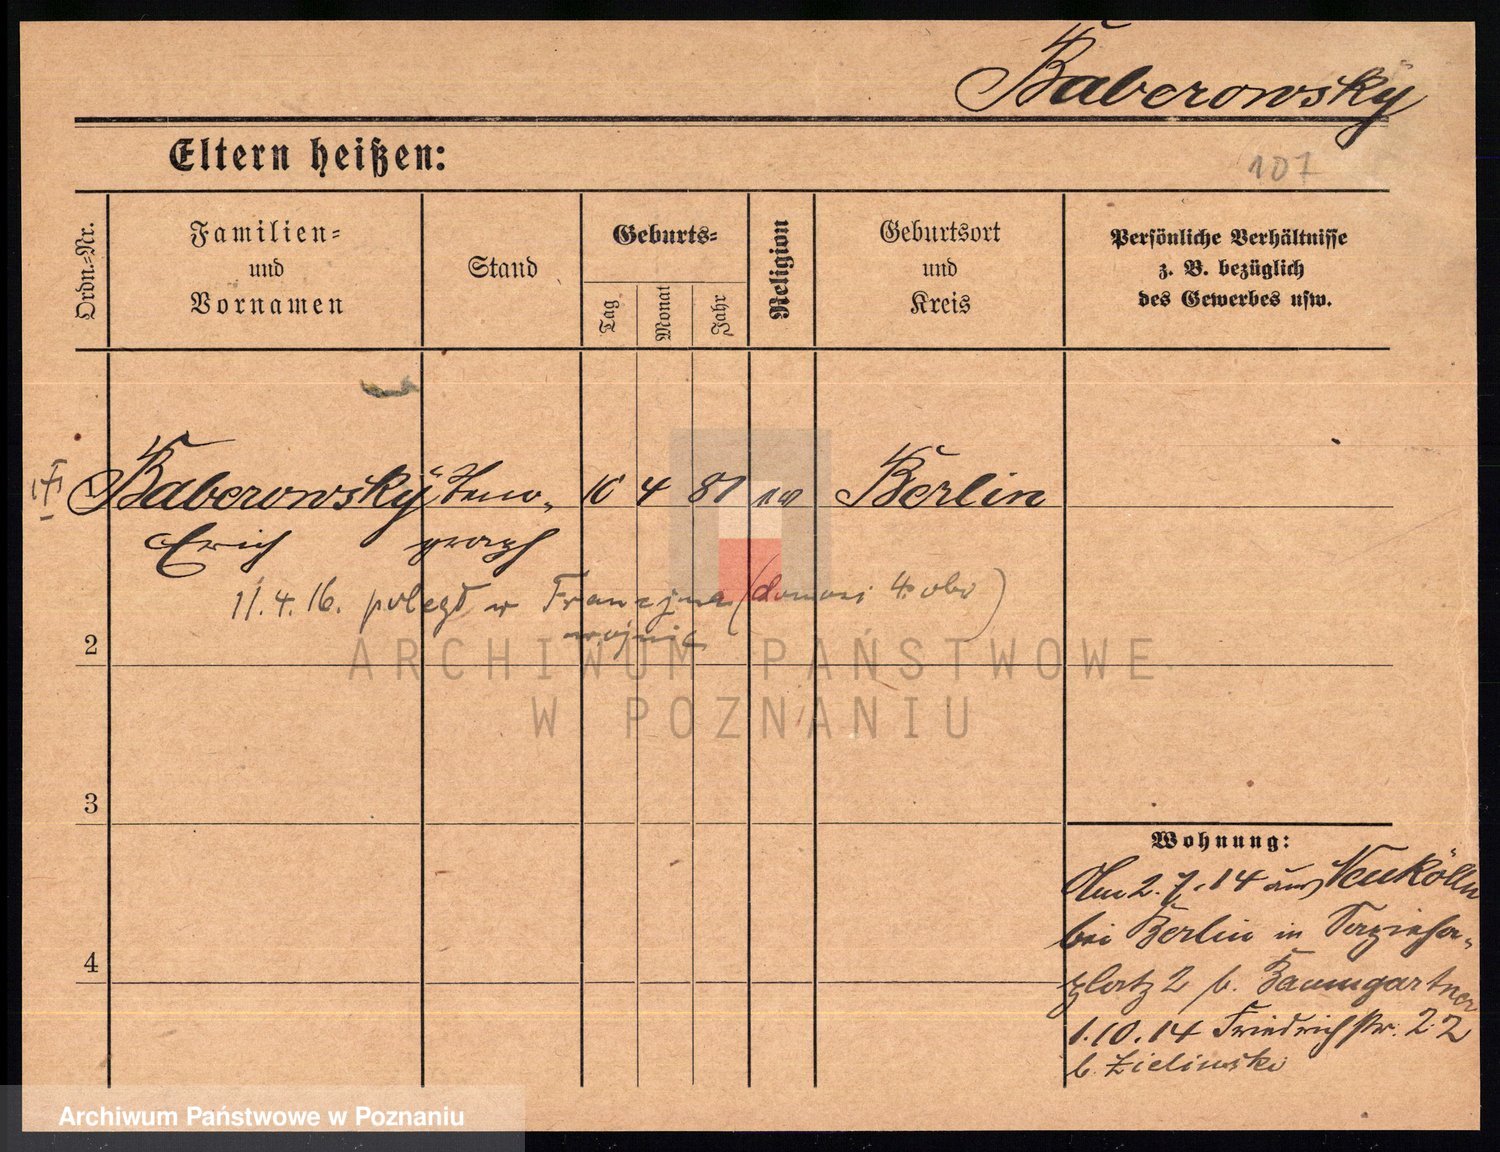 Baberowsky
Eltern heißen:
107
Ordn.-Nr.
Familien-
und
Vornamen
Stand
Geburts-
Tag
Monat
Jahr
Religion
Geburtsort
und
Kreis
Persönliche Verhältnisse
z. B. bezüglich
des Gewerbes usw.
1 Baberowsky Steno- 10 4 81 ev Berlin
Erich graph
11.4.16. poległ w Francji
wojnie
2
ARCHIWUM PAŃSTWOWE
W POZNANIU
3
4
Wohnung:
Am 2.7.14 aus Neukölln
bei Berlin in Sapieha-
platz 2 b. Baumgartner
1.10.14 Friedrichstr. 22
b. Zielinski
Archiwum Państwowe w Poznaniu